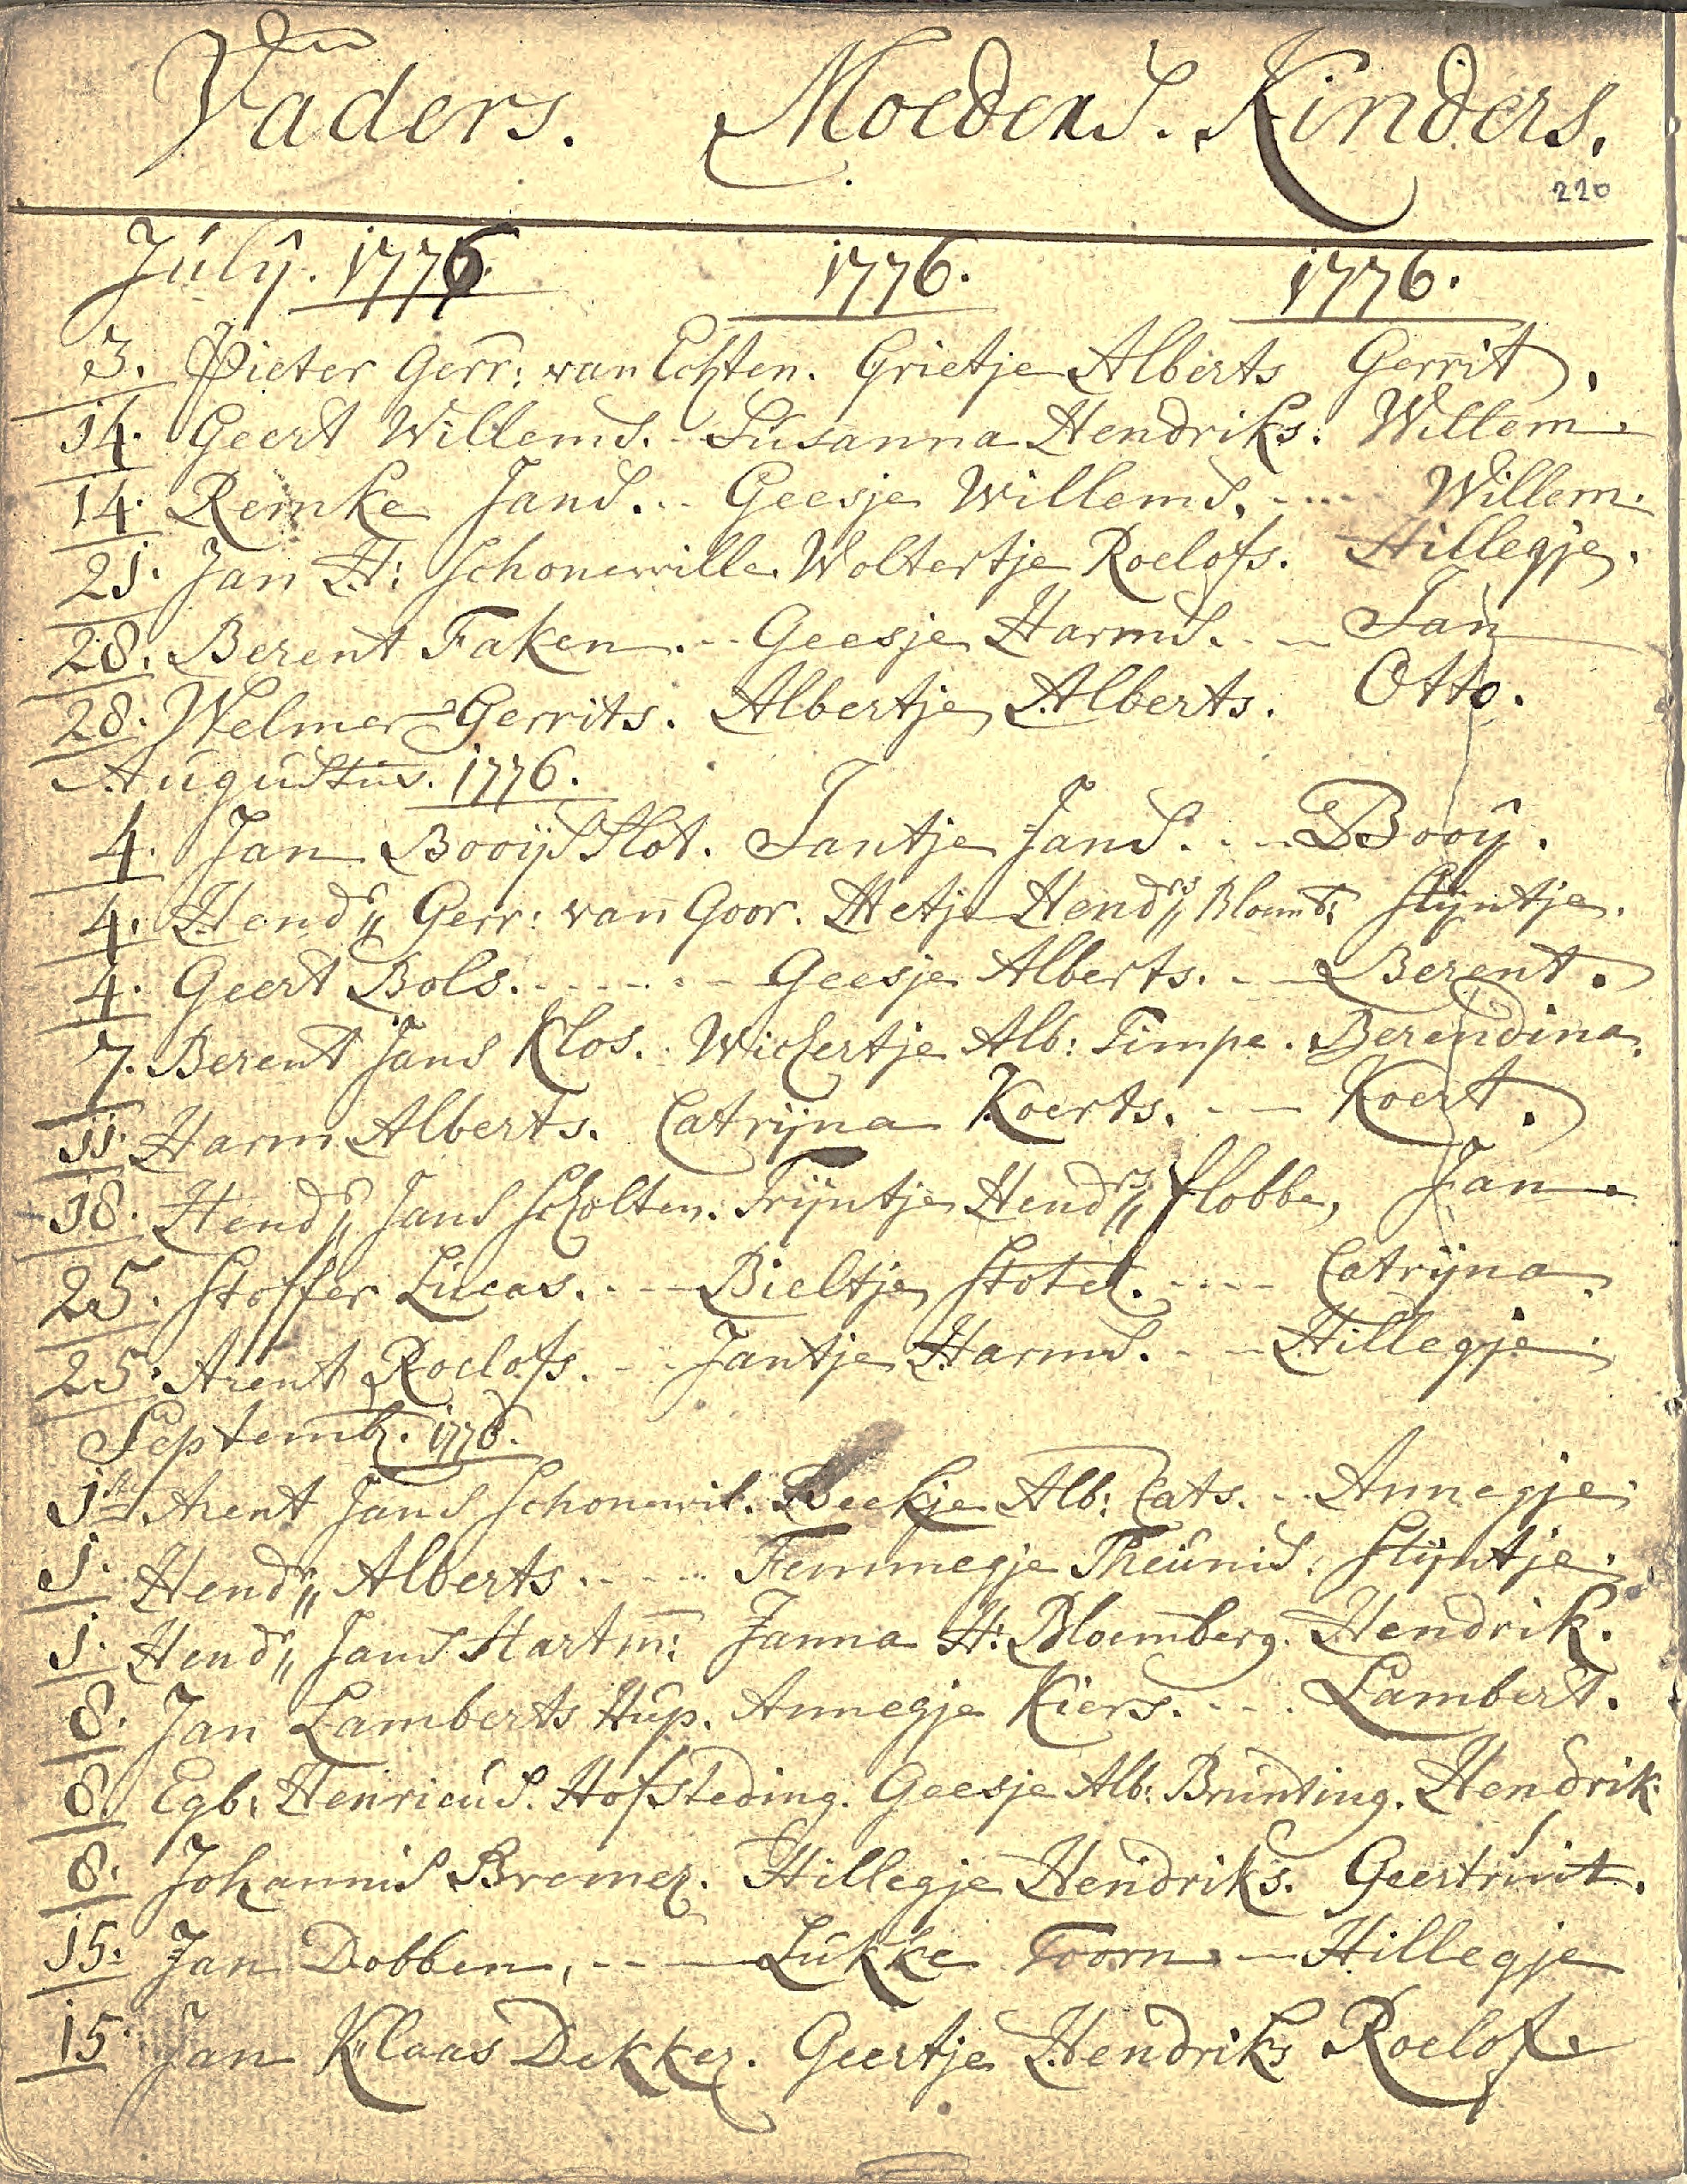 Vaders. Moeders. Kinders.
220
July. 1776. 1776. 1776.
3. Pieter Gerr: van Echten. Grietje Alberts Gerrit.
14. Geert Willems. Susanna Hendriks. Willem.
14. Remke Jans. Geesje Willems. Willem.
21. Jan H: Schonewille. Woltertje Roelofs. Hillegje.
28. Berent Faken. Geesje Harms. Jan
28. Welmer Gerrits. Albertje Alberts. Otto.
Augustus. 1776.
4. Jan Booijs Slot. Jantje Jans. Booy.
4. Hendr,, Gerr: van Goor. Metje Hendrs,, Blomb: Stijntje.
4. Geert Bols. Geesje Alberts. Berent.
7. Berent Jans Klos. Wichertje Alb: Timpe. Berendina.
11. Harm Alberts. Catrijna Koerts. Koert.
18. Hendr,, Jans Scholten. Trijntje Hendrs,, Slobbe, Jan.
25. Stoffer Lucas. Bieltje Stotel. Catrijna.
25. Arent Roelofs. Jantje Harms. Hillegje.
Septemb. 1776.
1ste Arent Jans Schonewil. Beekje Alb: Cats. Annegje.
1. Hendr,, Alberts. Femmegje Theunis. Stijntje.
1. Hendr,, Jans Hartm: Janna H: Bloemberg. Hendrik.
8. Jan Lamberts Hup. Annegje Kiers. Lambert.
8. Egb: Henricus. Hofsteding. Geesje Alb: Brunting. Hendrik.
8. Johannis Bremer. Hillegje Hendriks. Geertruit.
15. Jan Dobben, Lukke Toorn. Hillegje
15. Jan Klaas Dekker. Geertje Hendriks Roelof.